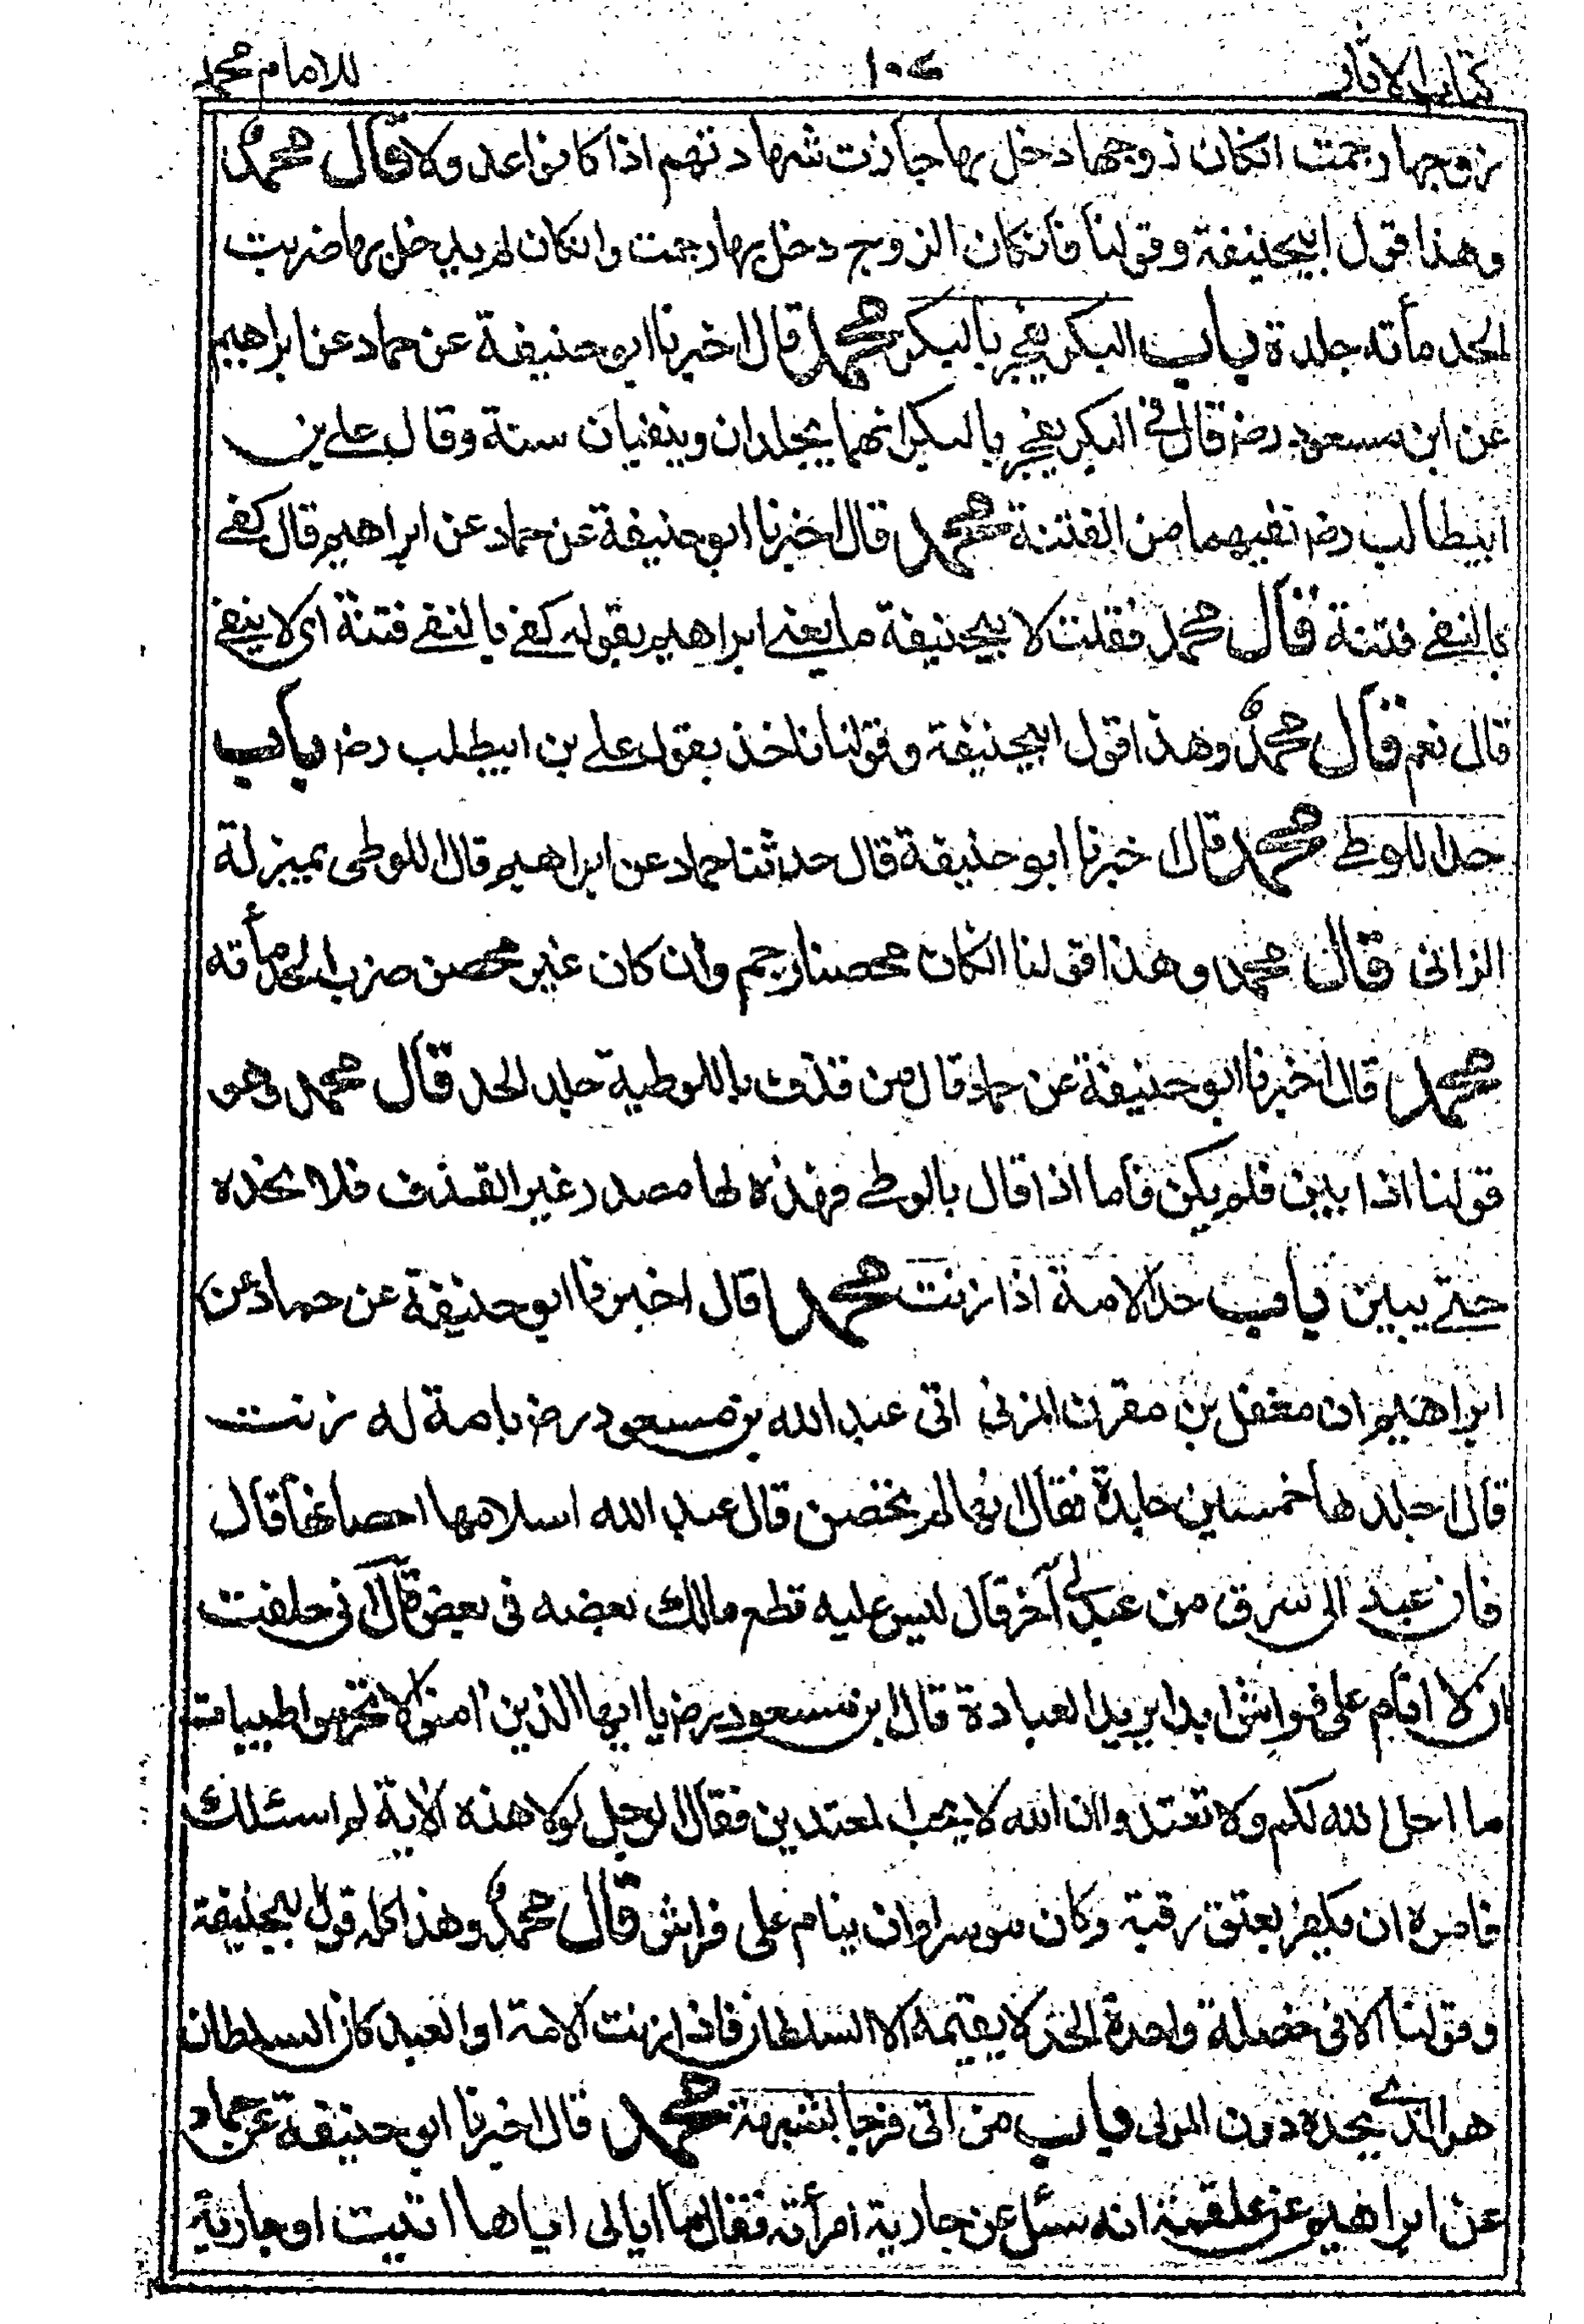 كتاب الاثار ١٠٤ للامام محمد
زوجها رجمت انكان زوجها دخل بها جازت شهادتهم اذا كانوا عدولا قال محمد
وهذا قول ابيحنيفة وقولنا فانكان الزوج دخل بها رجمت وانكان لم يدخل بها ضربت
الحد مأته جلدة باب البكر يفجر بالبكر محمد قال اخبرنا ابو حنيفة عن حماد عن ابراهيم
عن ابن مسعود رضـ قال في البكر يفجر بالبكر انهما يجلدان وينفيان سنة وقال علے بن
ابيطالب رضـ نفيهما من الفتنة محمد قال اخبرنا ابو حنيفة عن حماد عن ابراهيم قال كفے
بالنفے فتنة قال محمد فقلت لابيحنيفة ما يعنے ابراهيم بقوله كفے بالنفے فتنة اى لا ينفے
قال نعم قال محمد وهذا قول ابيحنيفة وقولنا ناخذ بقول علے بن ابيطلب رضـ باب
حد اللوطے محمد قال اخبرنا ابو حنيفة قال حدثنا حماد عن ابراهيم قال اللوطى بمنزلة
الزانى قال محمد وهذا قولنا انكان محصنا رجم وان كان غير محصن ضرب الحد مأته
محمد قال اخبرنا ابو حنيفة عن حماد قال من قذف باللوطية جلد الحد قال محمد وهو
قولنا اذا بين فلم يكن فأما اذا قال بالوطے فهذه لها مصدر غير القذف فلا نحده
حتے يبين باب حد الامة اذا زنت محمد قال اخبرنا ابو حنيفة عن حماد عن
ابراهيم ان معقل بن مقرن المزنى اتى عبد الله بن مسعود رضـ بامة له زنت
قال اجلدها خمسين جلدة فقال انها لم تحصن قال عبد الله اسلامها احصانها قال
فان عبد الى سرق من عبد لى آخر قال ليس عليه قطع مالك بعضه فى بعض قال انى حلفت
ان لا انام على فراش ابدا يريد العبادة قال ابن مسعود رضـ يا ايها الذين امنوا لا تحرموا طيبات
ما احل الله لكم ولا تعتدوا ان الله لا يحب المعتدين فقال الرجل لولا هذه الاية لم اسئلك
فامره ان يكفر بعتق رقبة وكان موسرا وان ينام على فراش قال محمد وهذا كله قول ابيحنيفة
وقولنا الا فى خصلة واحدة الحد لا يقيمه الا السلطان فاذا زنت الامة او العبد كان السلطان
هو الذے يحده دون المولى باب من اتى فرجا بشبهة محمد قال اخبرنا ابو حنيفة عن حماد
عن ابراهيم عن علقمة انه سئل عن جارية امرأته فقال ما ابالى اياها اتيت او جارية